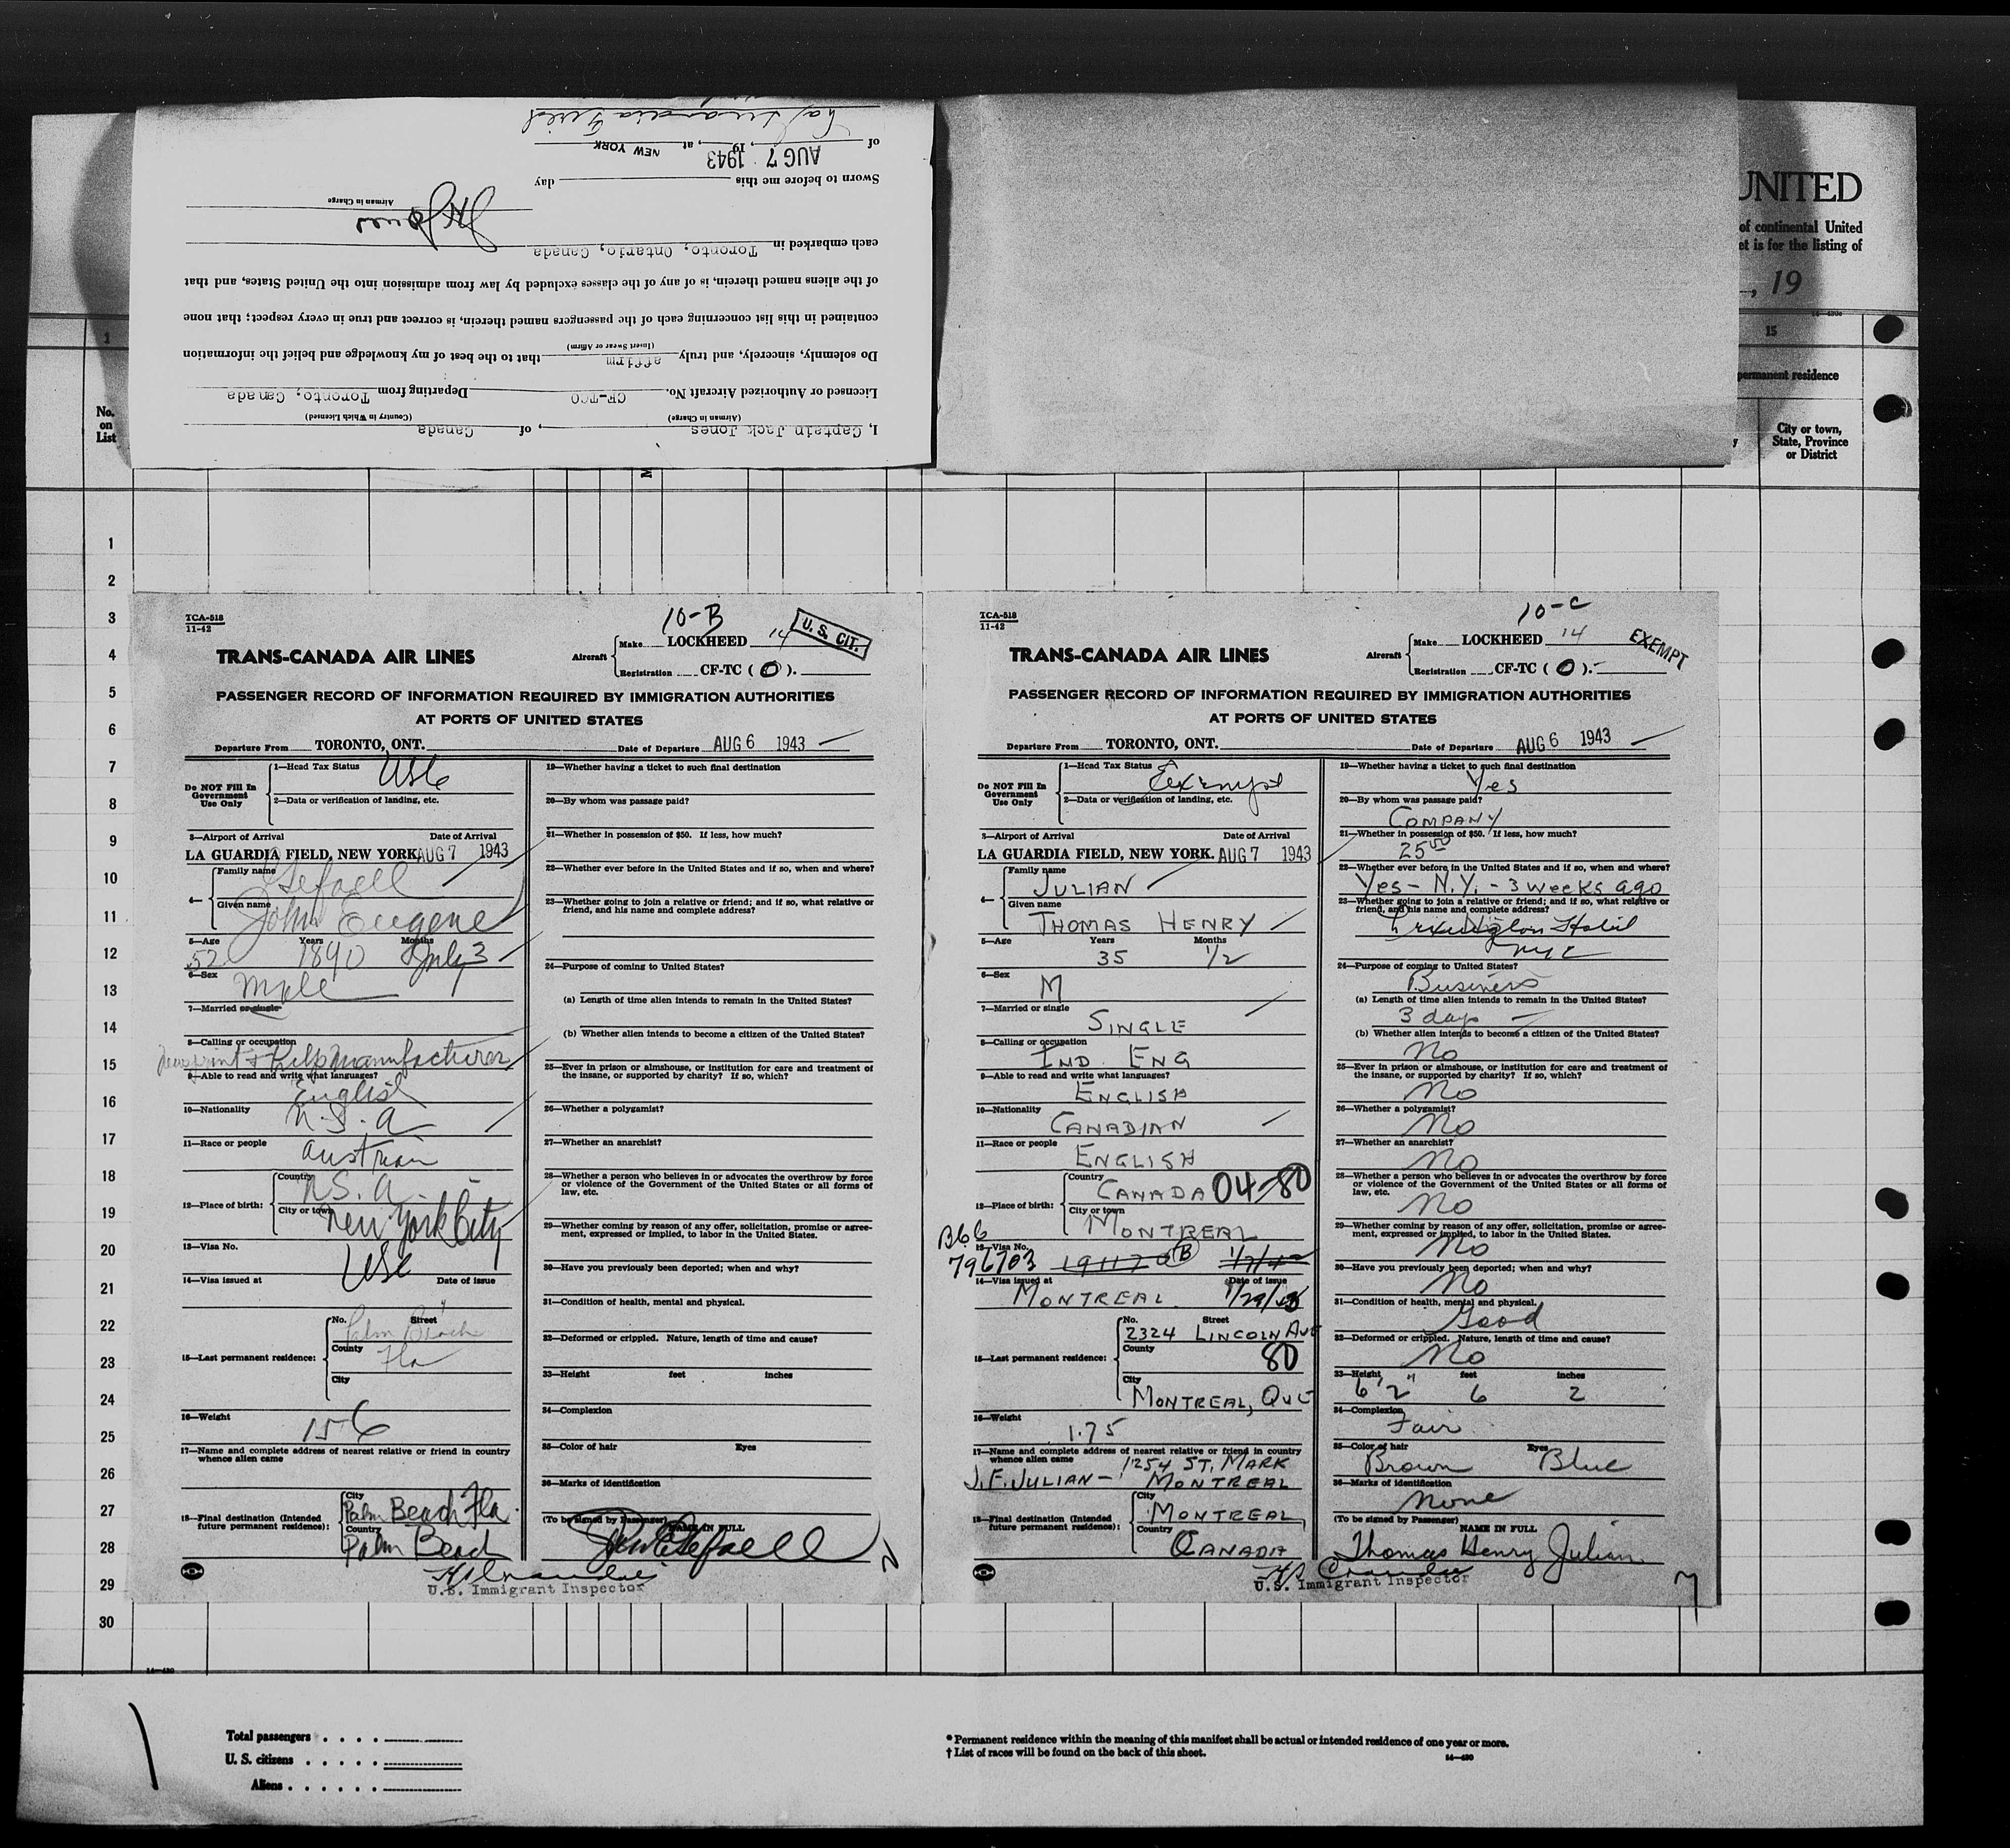 UNITED
of continental United
et is for the listing of
, 19
15
permanent residence
City or town,
State, Province
or District
1
No.
on
List
I, Captain Jack Jones, of Canada
(Airman in Charge) (Country in Which Licensed)
Licensed or Authorized Aircraft No. CF-TCO Departing from Toronto, Canada
Do solemnly, sincerely, and truly affirm that to the best of my knowledge and belief the information
(Insert Swear or Affirm)
contained in this list concerning each of the passengers named therein, is correct and true in every respect; that none
of the aliens named therein, is of any of the classes excluded by law from admission into the United States, and that
each embarked in Toronto, Ontario, Canada
Jones
Airman in Charge
Sworn to before me this day
of AUG 7 1943, 19, at NEW YORK
La Guardia Field
1
2
3
4
5
6
7
8
9
10
11
12
13
14
15
16
17
18
19
20
21
22
23
24
25
26
27
28
29
30
TCA-518
11-42
10-B
U. S. CIT.
Aircraft Make LOCKHEED 14
Registration CF-TC ( O ).
TRANS-CANADA AIR LINES
PASSENGER RECORD OF INFORMATION REQUIRED BY IMMIGRATION AUTHORITIES
AT PORTS OF UNITED STATES
Departure From TORONTO, ONT. Date of Departure AUG 6 1943
Do NOT Fill In
Government
Use Only
1—Head Tax Status USC
2—Data or verification of landing, etc.
3—Airport of Arrival Date of Arrival
LA GUARDIA FIELD, NEW YORK AUG 7 1943
4— Family name Gefaell
Given name John Eugene
5—Age Years Months
52 1890 July 3
6—Sex Male
7—Married or single
8—Calling or occupation
Newsprint & Pulp Manufacturer
9—Able to read and write what languages?
English
10—Nationality U.S.A
11—Race or people Austrian
12—Place of birth: Country U.S.A.
City or town New York City
13—Visa No. USC
14—Visa issued at Date of issue
15—Last permanent residence: No. Street
Palm Beach
County Fla
City
16—Weight 156
17—Name and complete address of nearest relative or friend in country
whence alien came
18—Final destination (Intended
future permanent residence):
City Palm Beach Fla.
Country Palm Beach
19—Whether having a ticket to such final destination
20—By whom was passage paid?
21—Whether in possession of $50. If less, how much?
22—Whether ever before in the United States and if so, when and where?
23—Whether going to join a relative or friend; and if so, what relative or
friend, and his name and complete address?
24—Purpose of coming to United States?
(a) Length of time alien intends to remain in the United States?
(b) Whether alien intends to become a citizen of the United States?
25—Ever in prison or almshouse, or institution for care and treatment of
the insane, or supported by charity? If so, which?
26—Whether a polygamist?
27—Whether an anarchist?
28—Whether a person who believes in or advocates the overthrow by force
or violence of the Government of the United States or all forms of
law, etc.
29—Whether coming by reason of any offer, solicitation, promise or agree-
ment, expressed or implied, to labor in the United States.
30—Have you previously been deported; when and why?
31—Condition of health, mental and physical.
32—Deformed or crippled. Nature, length of time and cause?
33—Height feet inches
34—Complexion
35—Color of hair Eyes
36—Marks of identification
(To be signed by Passenger) NAME IN FULL
John E Gefaell
U.S. Immigrant Inspector
TCA-518
11-42
10-C
EXEMPT
Aircraft Make LOCKHEED 14
Registration CF-TC ( O ).
TRANS-CANADA AIR LINES
PASSENGER RECORD OF INFORMATION REQUIRED BY IMMIGRATION AUTHORITIES
AT PORTS OF UNITED STATES
Departure From TORONTO, ONT. Date of Departure AUG 6 1943
Do NOT Fill In
Government
Use Only
1—Head Tax Status Exempt
2—Data or verification of landing, etc.
3—Airport of Arrival Date of Arrival
LA GUARDIA FIELD, NEW YORK. AUG 7 1943
4— Family name JULIAN
Given name THOMAS HENRY
5—Age Years Months
35 1/2
6—Sex M
7—Married or single
SINGLE
8—Calling or occupation
IND. ENG
9—Able to read and write what languages?
ENGLISH
10—Nationality CANADIAN
11—Race or people ENGLISH
12—Place of birth: Country CANADA 04-80
City or town MONTREAL
B66
13—Visa No.
796703
14—Visa issued at Date of issue
MONTREAL 1/29/43
15—Last permanent residence: No. Street
2324 LINCOLN AVE
County 80
City MONTREAL, QUE
16—Weight 175
17—Name and complete address of nearest relative or friend in country
whence alien came 1254 ST. MARK
J.F. JULIAN — MONTREAL
18—Final destination (Intended
future permanent residence):
City MONTREAL
Country CANADA
19—Whether having a ticket to such final destination
Yes
20—By whom was passage paid?
COMPANY
21—Whether in possession of $50. If less, how much?
25.00
22—Whether ever before in the United States and if so, when and where?
Yes - N.Y. - 3 weeks ago
23—Whether going to join a relative or friend; and if so, what relative or
friend, and his name and complete address?
Lexington Hotel
NYC
24—Purpose of coming to United States?
Business
(a) Length of time alien intends to remain in the United States?
3 days
(b) Whether alien intends to become a citizen of the United States?
No
25—Ever in prison or almshouse, or institution for care and treatment of
the insane, or supported by charity? If so, which?
No
26—Whether a polygamist?
No
27—Whether an anarchist?
No
28—Whether a person who believes in or advocates the overthrow by force
or violence of the Government of the United States or all forms of
law, etc.
No
29—Whether coming by reason of any offer, solicitation, promise or agree-
ment, expressed or implied, to labor in the United States.
No
30—Have you previously been deported; when and why?
No
31—Condition of health, mental and physical.
Good
32—Deformed or crippled. Nature, length of time and cause?
No
33—Height feet inches
6' 2" 6 2
34—Complexion
Fair
35—Color of hair Eyes
Brown Blue
36—Marks of identification
None
(To be signed by Passenger) NAME IN FULL
Thomas Henry Julian
U.S. Immigrant Inspector
14—430
Total passengers
U. S. citizens
Aliens
* Permanent residence within the meaning of this manifest shall be actual or intended residence of one year or more.
† List of races will be found on the back of this sheet.
14—430